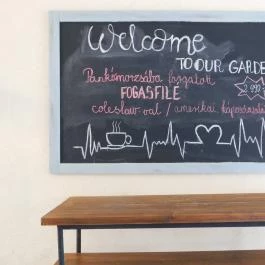 Welcome
TO OUR GARDE
Pankómorzsába forgatott
FOGASFILÉ
2.990
coleslaw-val / amerikai káposztasalá